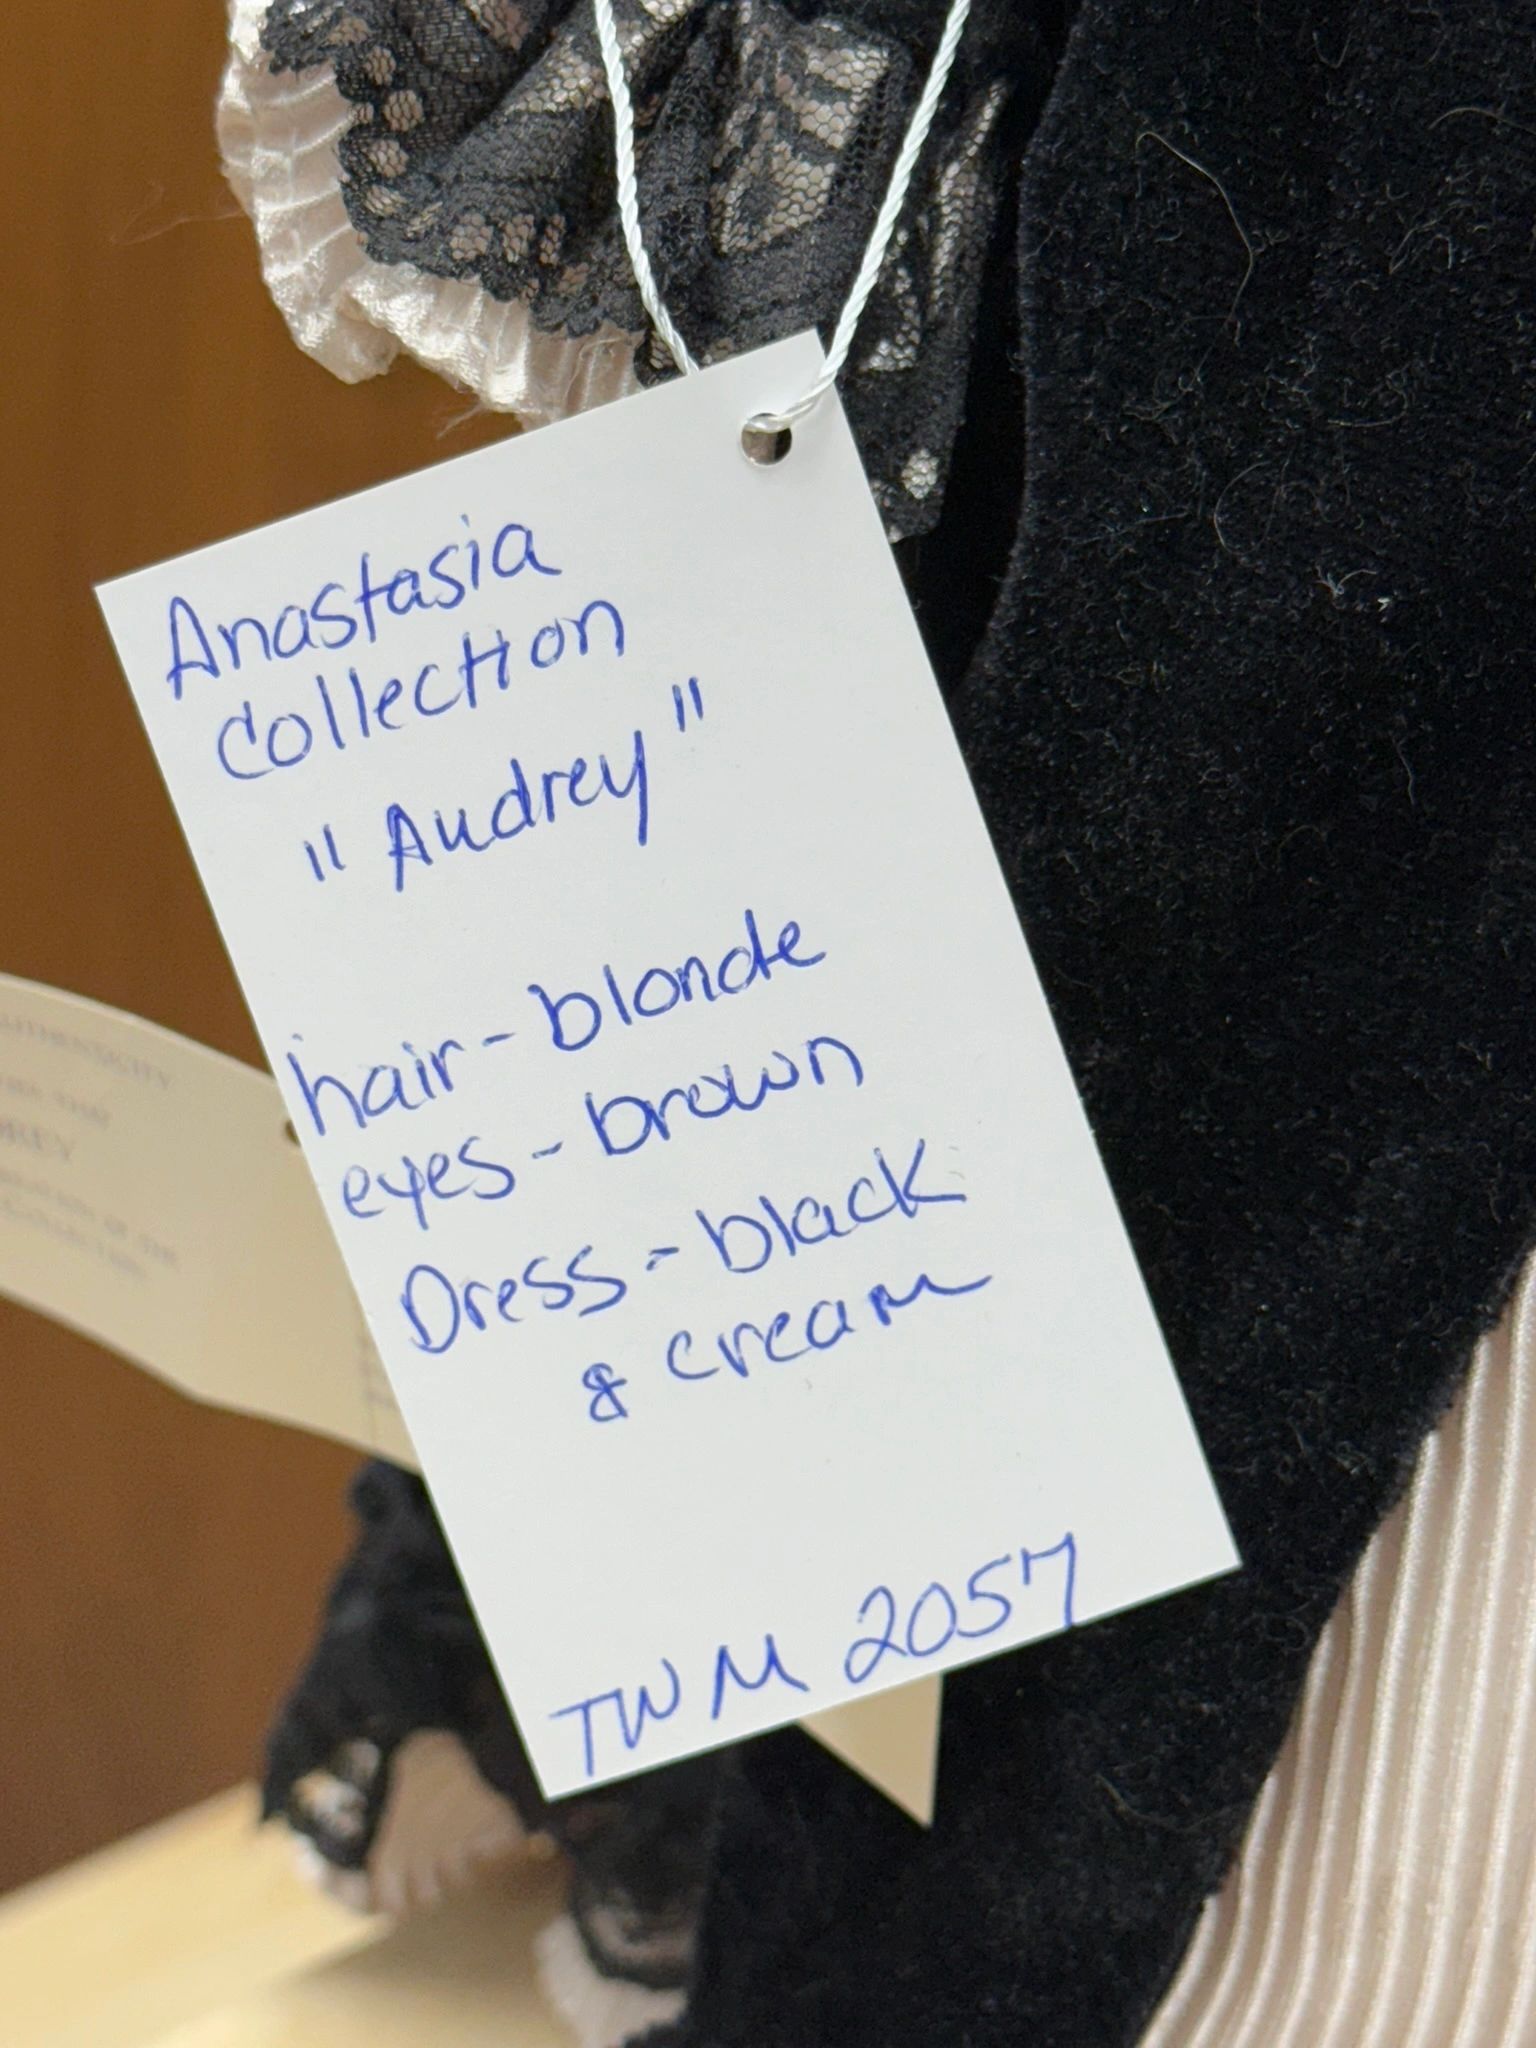 Anastasia
Collection
"Audrey"
hair-blonde
eyes-brown
Dress-black
& cream
TWM 2057